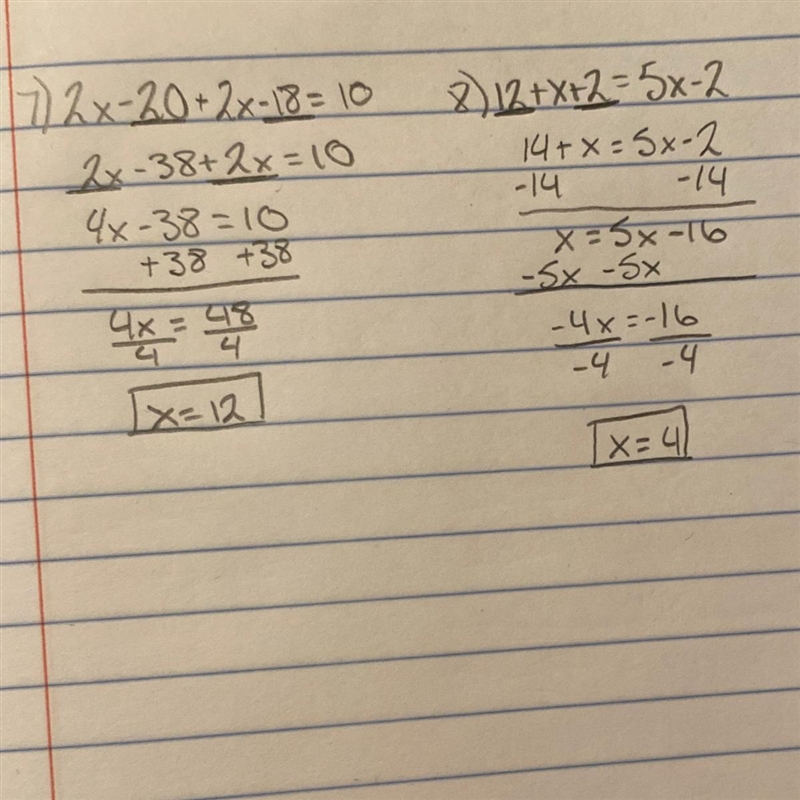 7) 2x-20+2x-18=10
2x-38+2x=10
4x-38=10
+38 +38
4x/4 = 48/4
x=12
8) 12+x+2=5x-2
14+x=5x-2
-14 -14
x=5x-16
-5x -5x
-4x/-4 = -16/-4
x=4